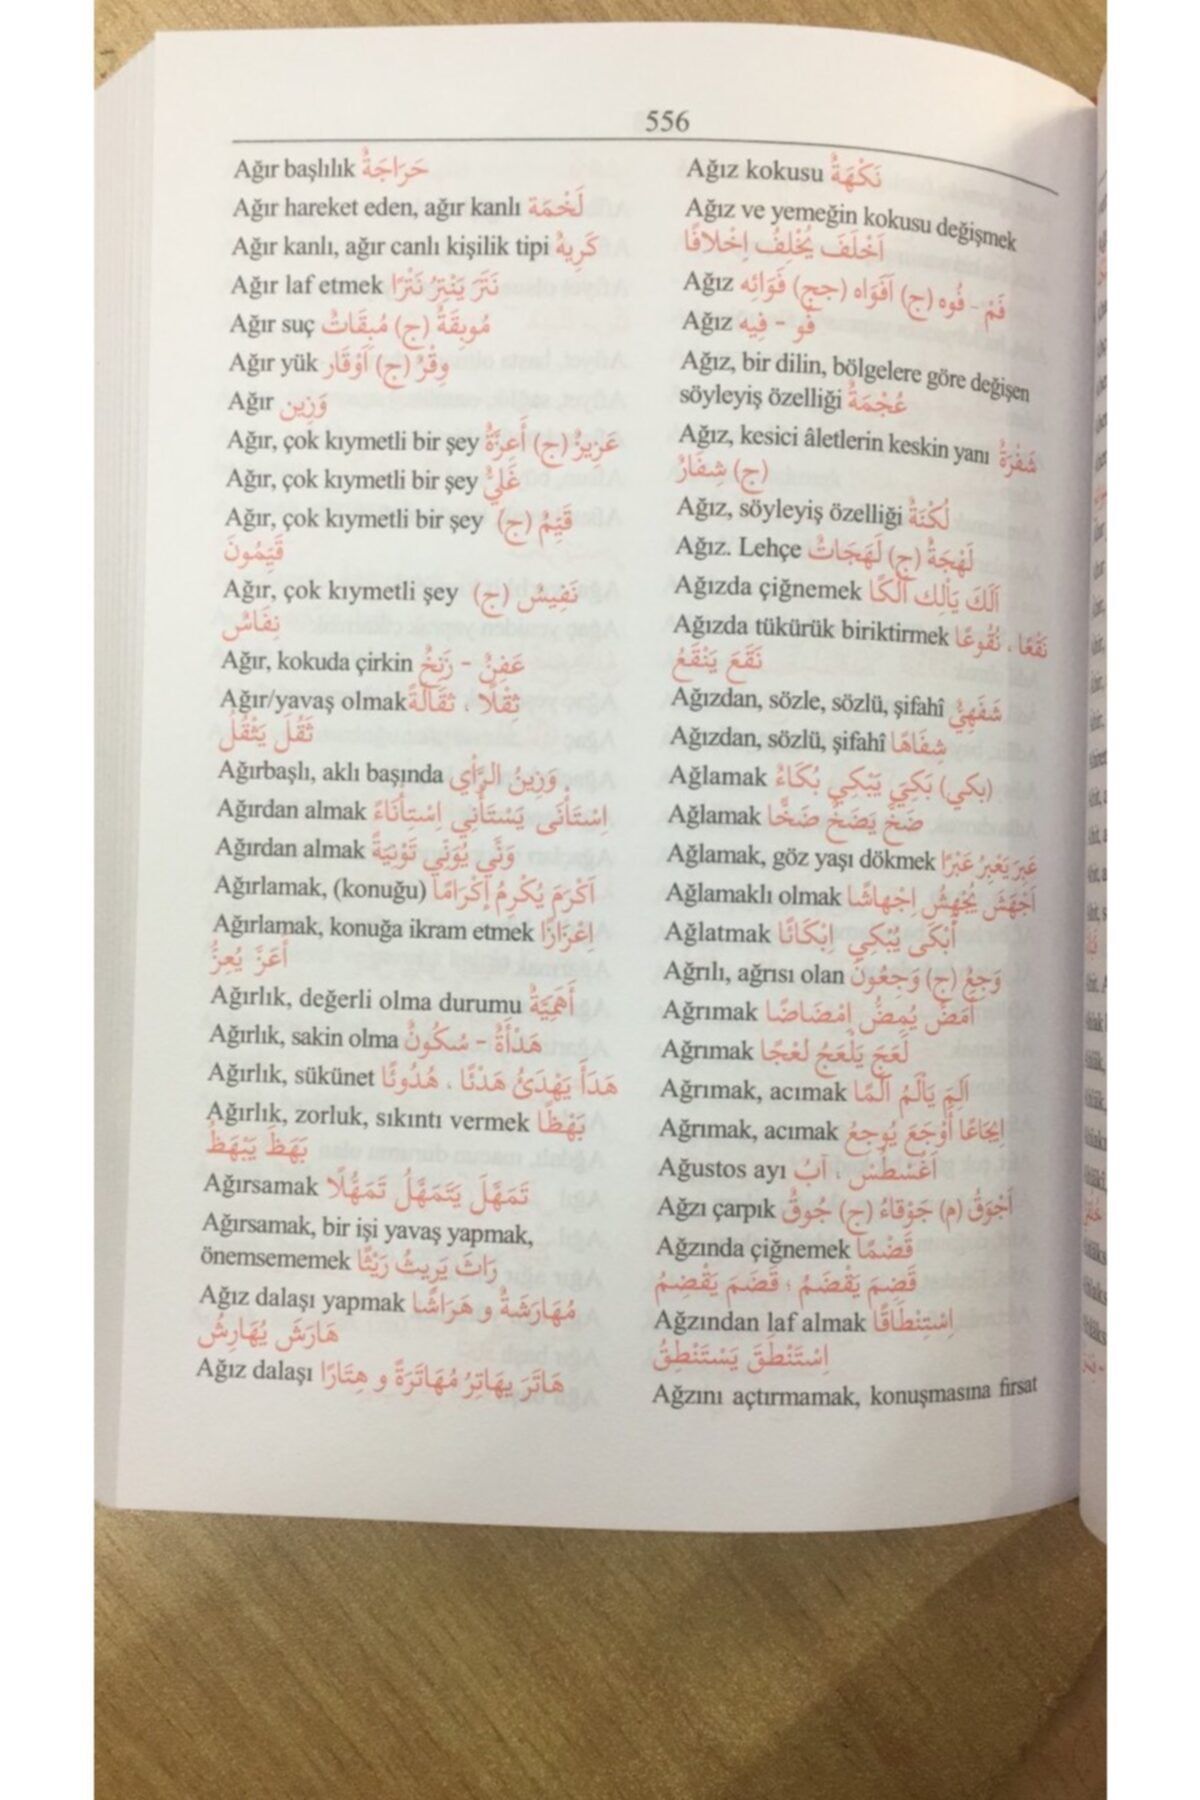 556
Ağır başlılık حَرَاجَةٌ
Ağır hareket eden, ağır kanlı لَخْمَة
Ağır kanlı, ağır canlı kişilik tipi كَرِيهٌ
Ağır laf etmek نَتَرَ يَنْتِرُ نَتْرًا
Ağır suç مُوبِقَةٌ (ج) مُبِقَاتٌ
Ağır yük وِقْرٌ (ج) أَوْقَار
Ağır وَزِين
Ağır, çok kıymetli bir şey عَزِيزٌ (ج) أَعِزَّةٌ
Ağır, çok kıymetli bir şey غَلِيٌّ
Ağır, çok kıymetli bir şey قَيِّمُ (ج)
قَيِّمُونَ
Ağır, çok kıymetli şey نَفِيسٌ (ج)
نِفَاسٌ
Ağır, kokuda çirkin عَفِنٌ - زَنِخٌ
Ağır/yavaş olmak ثِقْلًا ، ثَقَالَةً
ثَقُلَ يَثْقُلُ
Ağırbaşlı, aklı başında وَزِينُ الرَّأْي
Ağırdan almak اِسْتَأْنَى يَسْتَأْنِي اِسْتِأْنَاءً
Ağırdan almak وَنَّي يُوَنِّي تَوْنِيَةً
Ağırlamak, (konuğu) اَكْرَمَ يُكْرِمُ إِكْرَامًا
Ağırlamak, konuğa ikram etmek اِعْزَازًا
أَعَزَّ يُعِزُّ
Ağırlık, değerli olma durumu أَهَمِّيَّةٌ
Ağırlık, sakin olma هَدْأَةٌ - سُكُونٌ
Ağırlık, sükünet هَدَأَ يَهْدَئُ هَدْئًا ، هُدُوئًا
Ağırlık, zorluk, sıkıntı vermek بَهْظًا
بَهَظَ يَبْهَظُ
Ağırsamak تَمَهَّلَ يَتَمَهَّلُ تَمَهُّلًا
Ağırsamak, bir işi yavaş yapmak,
önemsememek رَاثَ يَرِيثُ رَيْثًا
Ağız dalaşı yapmak مُهَارَشَةً و هَرَاشًا
هَارَشَ يُهَارِشُ
Ağız dalaşı هَاتَرَ يهَاتِرُ مُهَاتَرَةً و هِتَارًا
Ağız kokusu نَكْهَةٌ
Ağız ve yemeğin kokusu değişmek
اَخْلَفَ يُخْلِفُ اِخْلَافًا
Ağız فَمْ - فُوه (ج) اَفْوَاه (جج) فَوَائِه
Ağız فُو - فِيه
Ağız, bir dilin, bölgelere göre değişen
söyleyiş özelliği عُجْمَةٌ
Ağız, kesici âletlerin keskin yanı شَفْرَةٌ
(ج) شِفَارٌ
Ağız, söyleyiş özelliği لُكْنَةٌ
Ağız. Lehçe لَهْجَةٌ (ج) لَهَجَاتٌ
Ağızda çiğnemek اَلَكَ يَاْلِك اَلْكًا
Ağızda tükürük biriktirmek نَقْعًا ، نُقُوعًا
نَقَعَ يَنْقَعُ
Ağızdan, sözle, sözlü, şifahî شَفَهِيٌّ
Ağızdan, sözlü, şifahî شِفَاهًا
Ağlamak (بكي) بَكِيَ يَبْكِي بُكَاءً
Ağlamak ضَخَّ يَضَخُّ ضَخًّا
Ağlamak, göz yaşı dökmek عَبِرَ يَعْبِرُ عَبْرًا
Ağlamaklı olmak اَجْهَشَ يُجْهِشُ اِجْهاشًا
Ağlatmak أَبْكَى يُبْكِي اِبْكَائًا
Ağrılı, ağrısı olan وَجِعٌ (ج) وَجِعُونَ
Ağrımak اَمَضَّ يُمِضُّ اِمْضَاضًا
Ağrımak لَعَجَ يَلْعَجُ لَعْجًا
Ağrımak, acımak اَلِمَ يَاْلَمُ اَلَمًا
Ağrımak, acımak اِيجَاعًا أَوْجَعَ يُوجِعُ
Ağustos ayı اَغُسْطُسْ ، آبٌ
Ağzı çarpık اَجْوَقُ (م) جَوْقَاءُ (ج) جُوقٌ
Ağzında çiğnemek قَضْمًا
قَضِمَ يَقْضَمُ ؛ قَضَمَ يَقْضِمُ
Ağzından laf almak اِسْتِنْطَاقًا
اِسْتَنْطَقَ يَسْتَنْطِقُ
Ağzını açtırmamak, konuşmasına fırsat